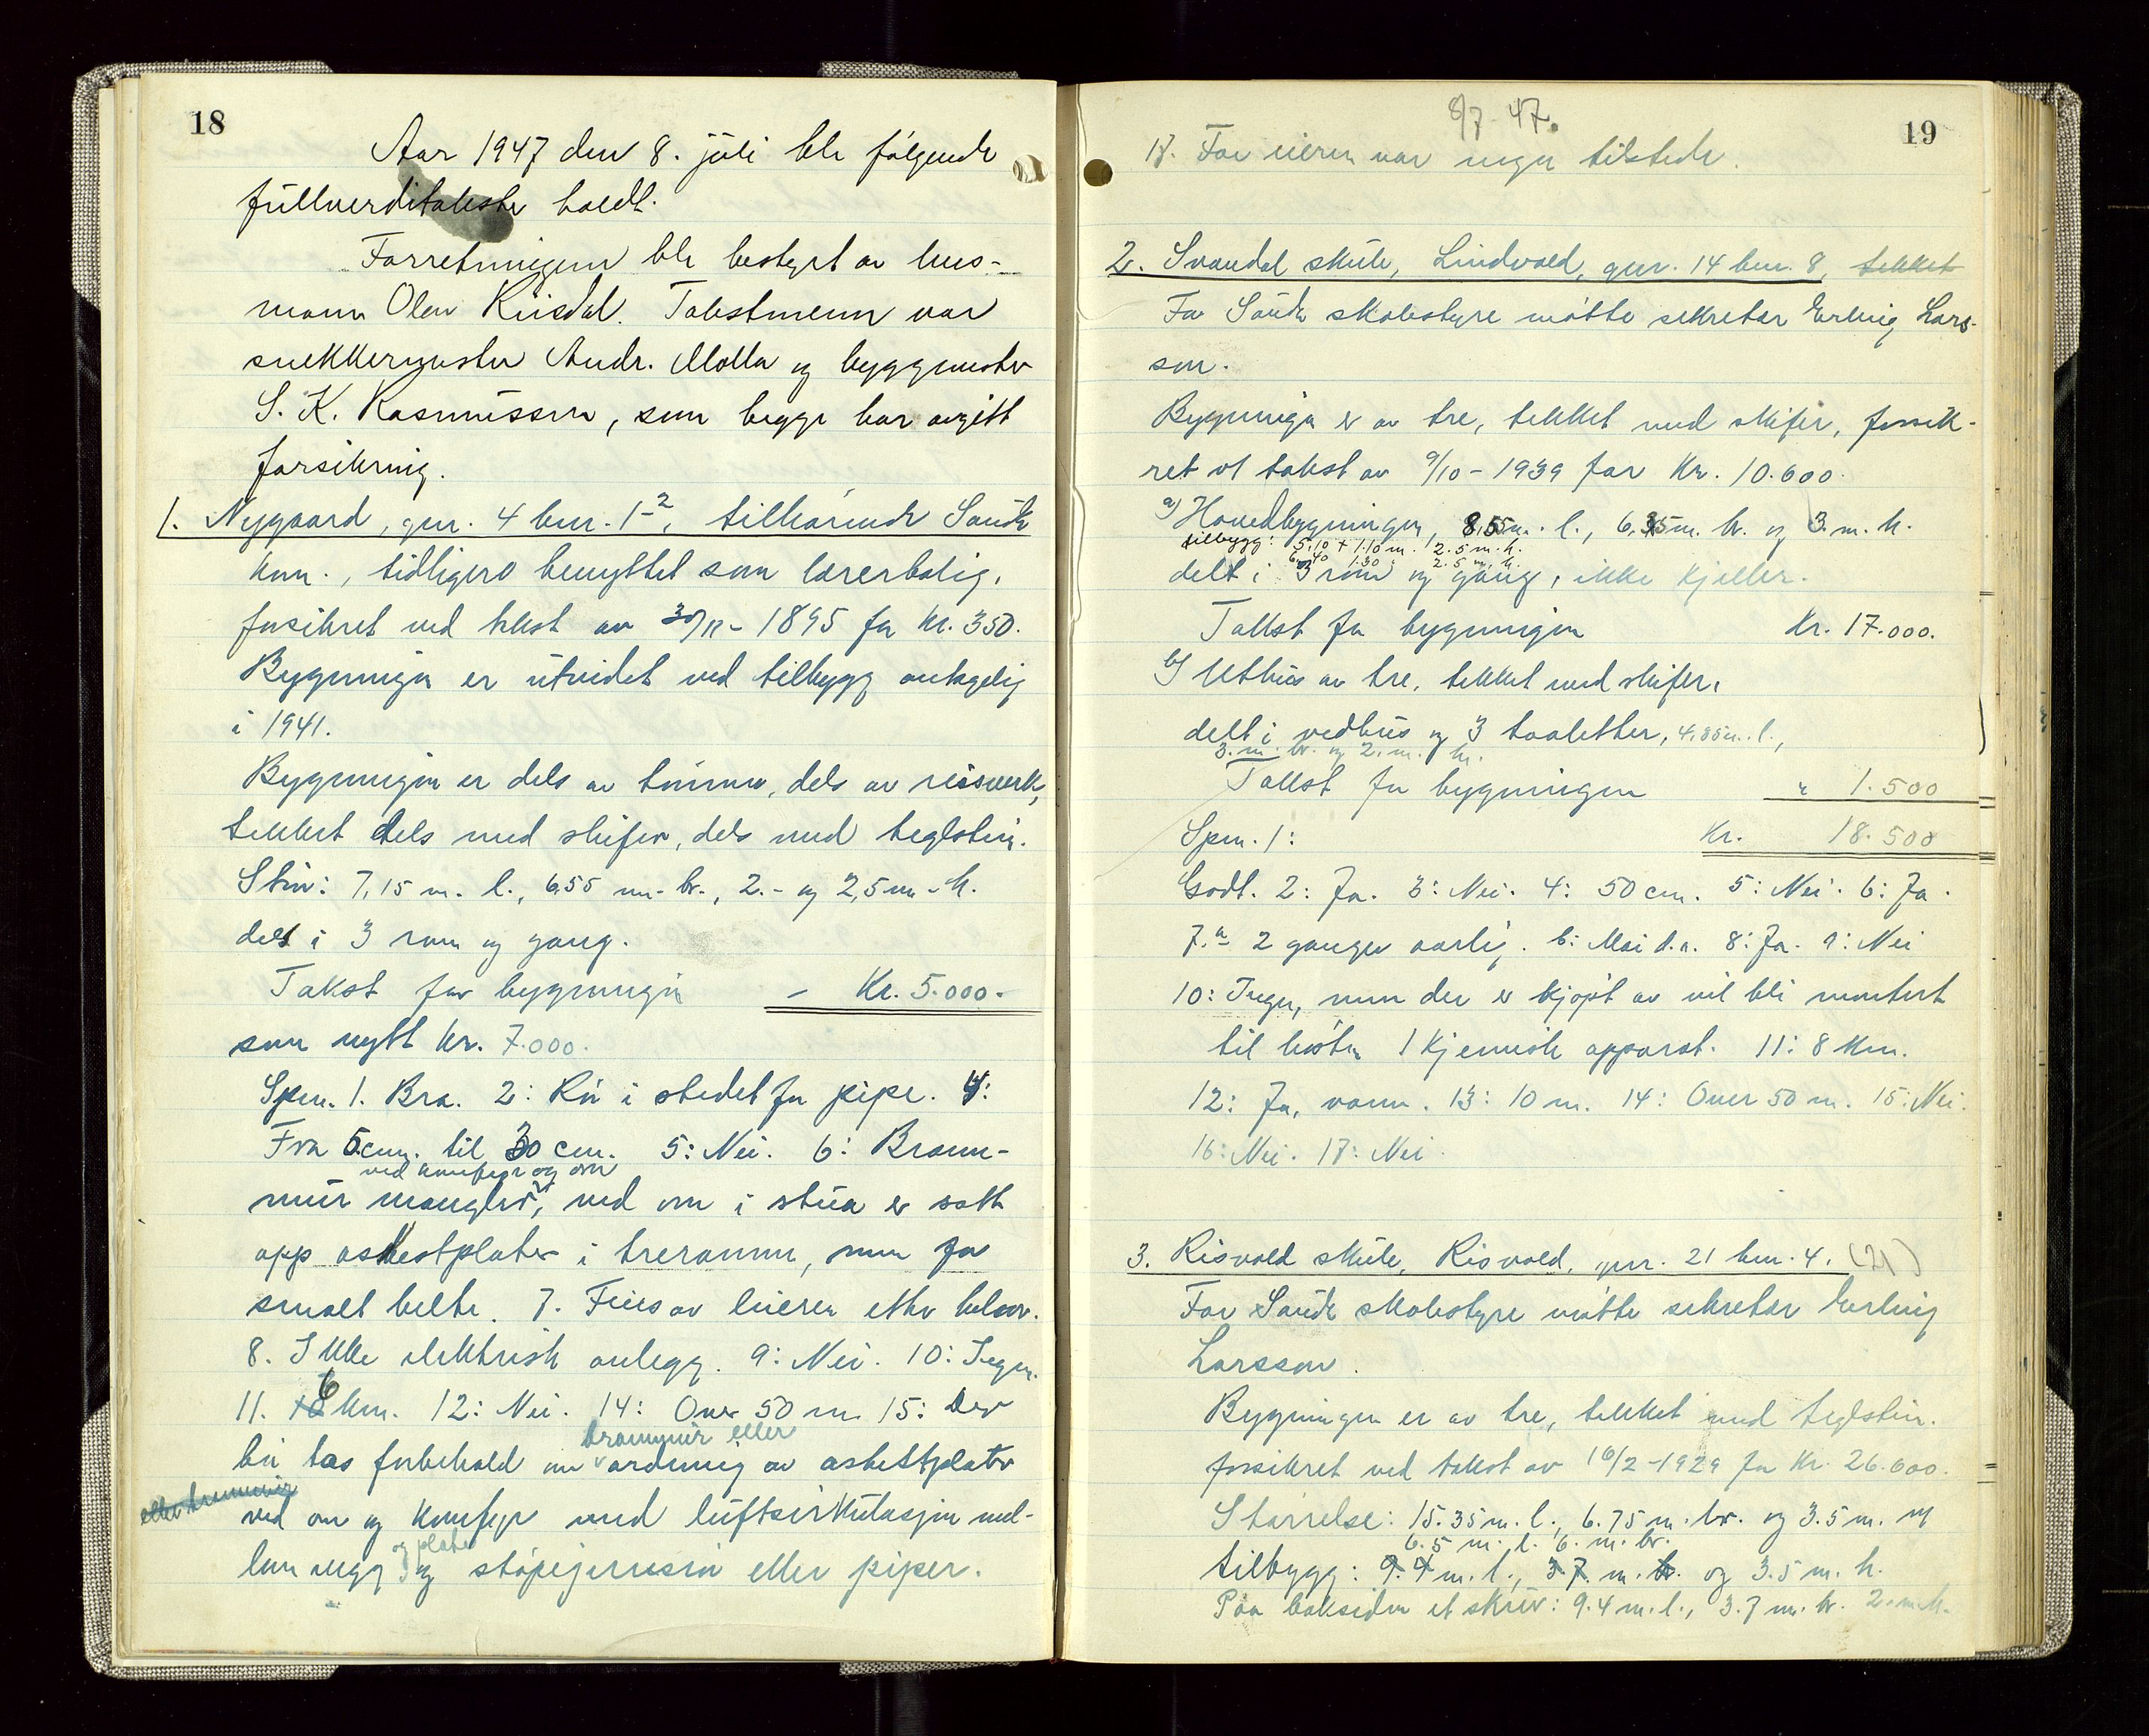 18
Aar 1947 den 8. juli ble følgende
fullverditakster holdt.
Forretningen ble bestyrt av lens-
mann Olav Riisdal. Takstmenn var
snekkermester Andr. Molla og byggmester
S. K. Rasmussen, som begge har avgitt
forsikring.
1. Nygaard, gnr. 4 bnr. 1-2, tilhørende Saude
kom., tidligere benyttet som lærerbolig,
forsikret ved takst av 30/11-1895 for kr. 350.
Bygningen er utvidet ved tilbygg antagelig
i 1941.
Bygningen er dels av tømmer, dels av reisverk,
tekket dels med skifer, dels med teglstein.
Størr: 7,15 m. l., 6,55 m. br., 2.- og 2,5 m. h.
delt i 3 rom og gang.
Takst for bygningen - Kr. 5.000.-
som nytt kr. 7.000.
Spm. 1. Bra. 2: Rør i stedet for pipe. 4:
Fra 5 cm. til 30 cm. 5: Nei. 6: Brann-
ved komfyr og ovn
mur mangler, ved ovn i stua er satt
opp asbestplater i treramme, men for
smalt belte. 7. Feies av leieren etter behov.
8. Ikke elektrisk anlegg. 9: Nei. 10: Ingen.
11. 6 km. 12: Nei. 14: Over 50 m. 15: Der
brannmur eller
bør tas forbehold om ordning av asbestplater
eller brannmur
ved ovn og komfyr med luftsirkulasjon mel-
og plate
lom vegg og støpejernsrør eller piper.
19
8/7 47.
17. For eieren var ingen tilstede.
2. Svandal skule, Lindvold, gnr. 14 bnr. 8, tekket
For Saude skolestyre møtte sekretær Erling Lars-
son.
Bygningen er av tre, tekket med skifer, forsik-
ret vt takst av 9/10-1939 for Kr. 10.600.
a) Hovedbygningen, 8,55 m. l., 6,35 m. br. og 3. m. h.
tilbygg: 5,10 + 1.10 m. 2.5 m. h.
6.40 1.30 2.5 m. h.
delt i 3 rom og gang, ikke kjeller.
Takst for bygningen Kr. 17.000.
b) Uthus av tre, tekket med skifer,
delt i vedhus og 3 toaletter, 4,85 m. l.,
3. m. br. og 2. m. h.
Takst for bygningen " 1.500
Spm. 1: Kr. 18.500
Godt. 2: Ja. 3: Nei. 4: 50 cm. 5: Nei. 6: Ja.
7. a 2 ganger aarlig. b: Mai d.a. 8: Ja. 9: Nei
10: Ingen, men der er kjøpt av vil bli montert
til høsten 1 kjemisk apparat. 11: 8 km.
12: Ja, vann. 13: 10 m. 14: Over 50 m. 15: Nei.
16: Nei. 17: Nei.
3. Risvold skule, Risvold, gnr. 21 bnr. 4. (21)
For Saude skolestyre møtte sekretær Erling
Larsson.
Bygningen er av tre, tekket med teglstein.
forsikret ved takst av 16/2-1929 for Kr. 26.600.
Størrelse: 15.35 m. l., 6.75 m. br. og 3.5 m. h
6.5 m. l. 6. m. br.
tilbygg: 9.4 m. l., 3.7 m. br. og 3.5 m. h.
Paa baksiden et skur: 9.4 m. l., 3.7 m. br. 2. m. h.